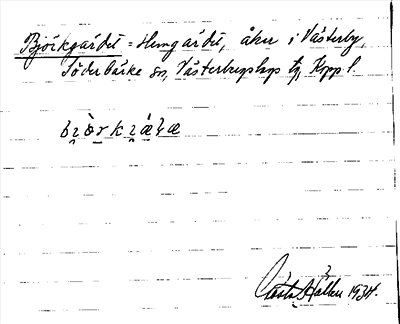 Björkgärdet = Hemgärdet, åker i Västerby,
Söderbärke sn, Västerbergslags tg, Kopp l.
Gösta Hållen 1934.